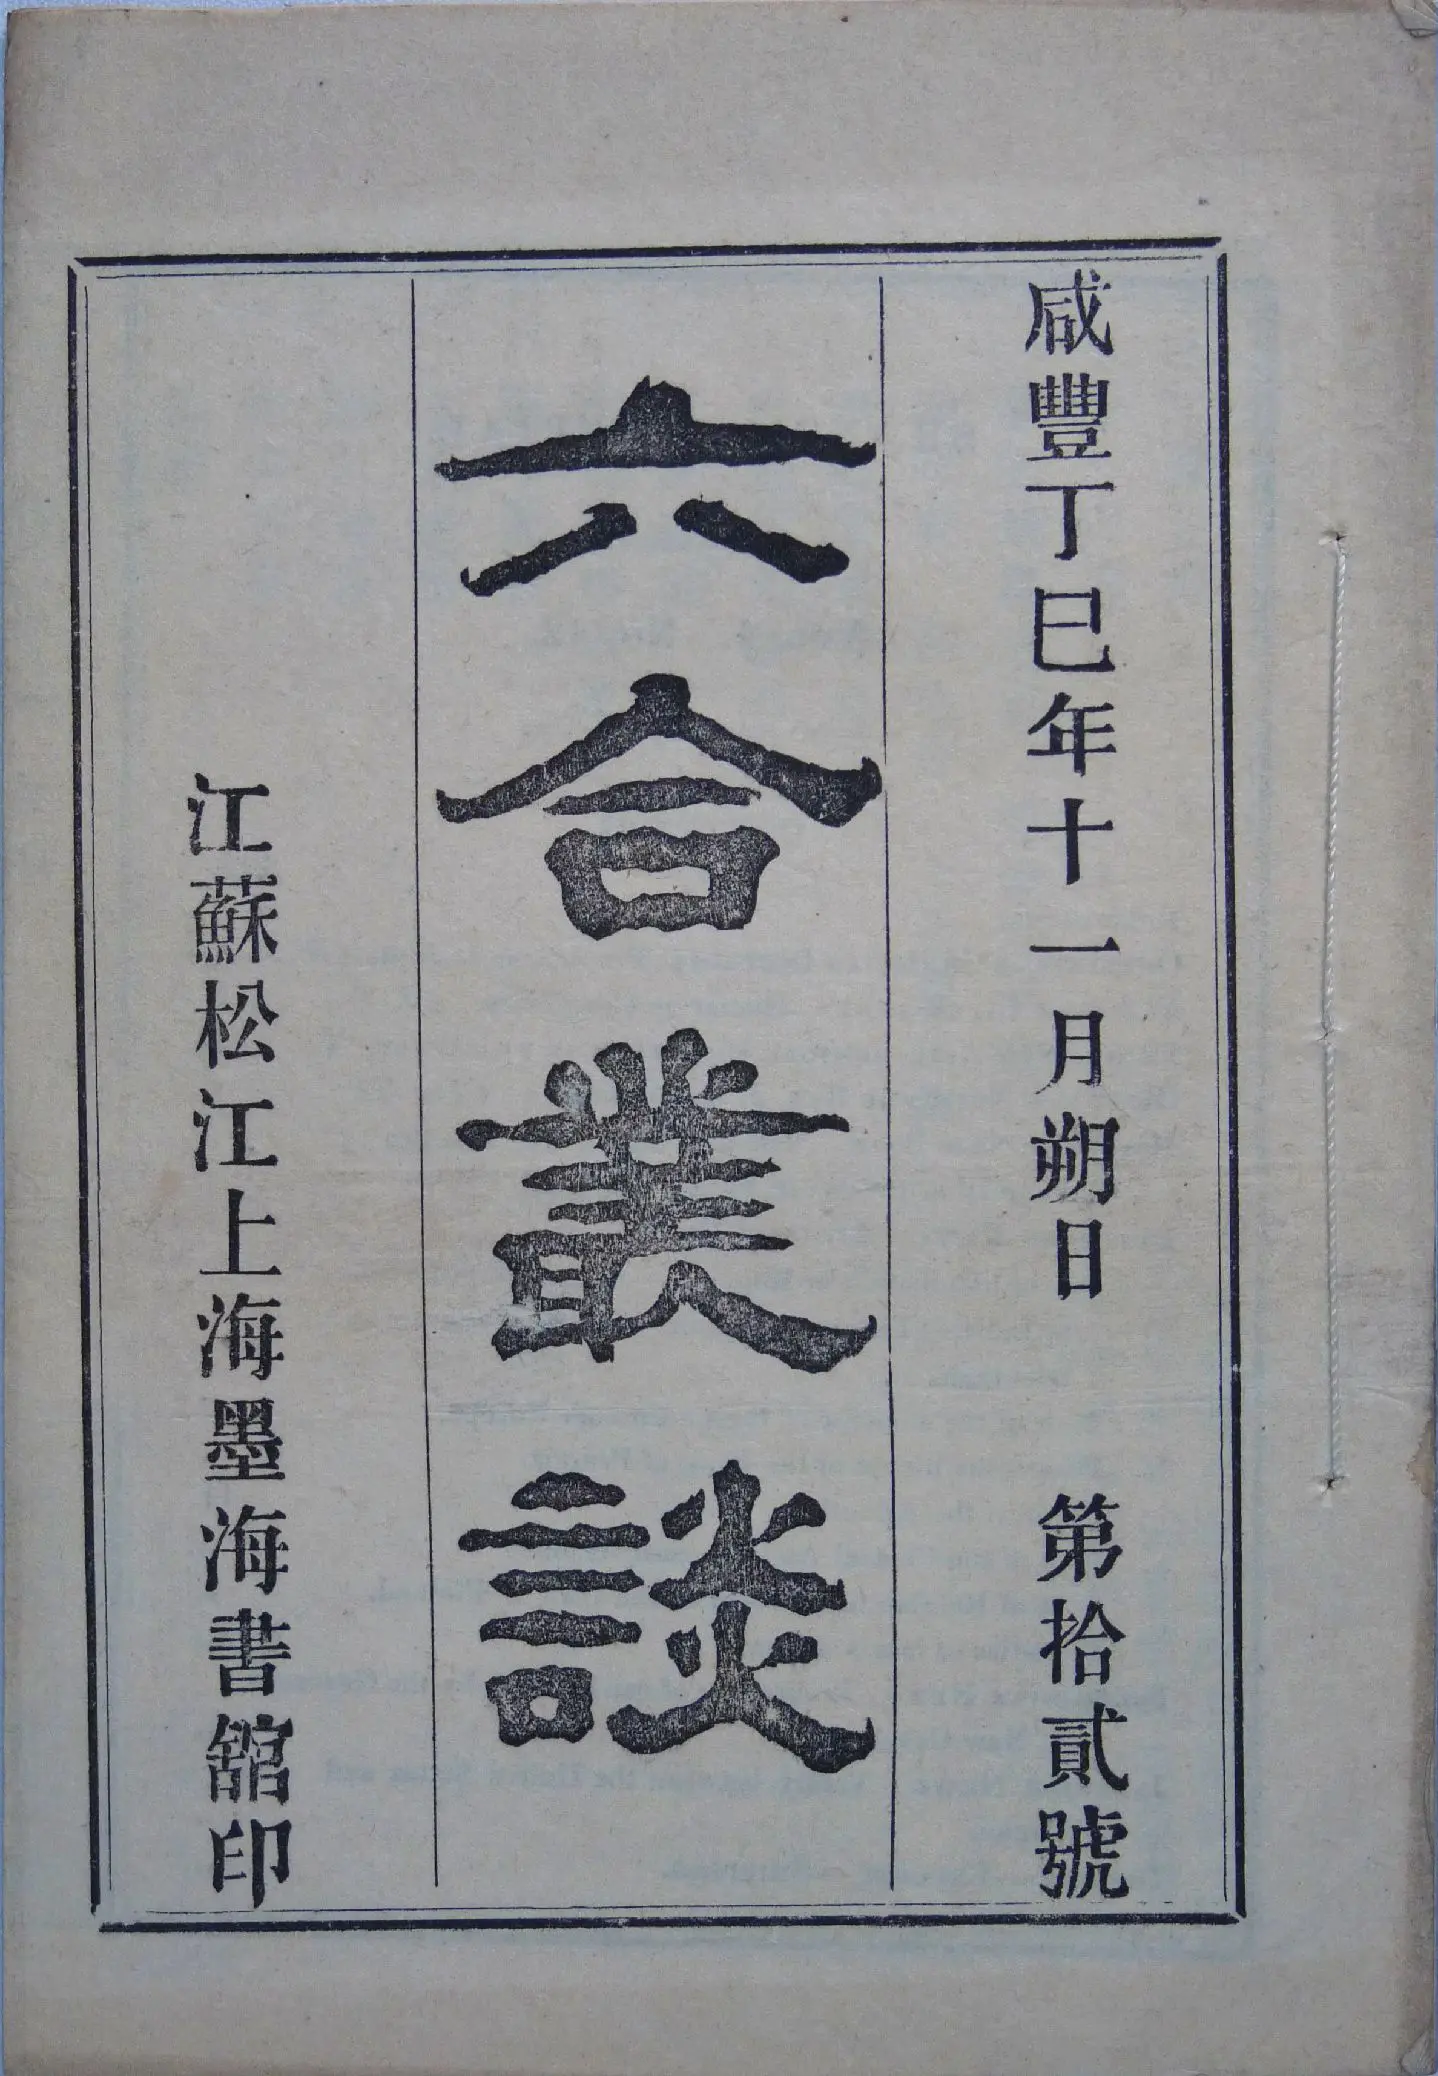 咸豐丁巳年十一月朔日 第拾貳號
六合叢談
江蘇松江上海墨海書舘印